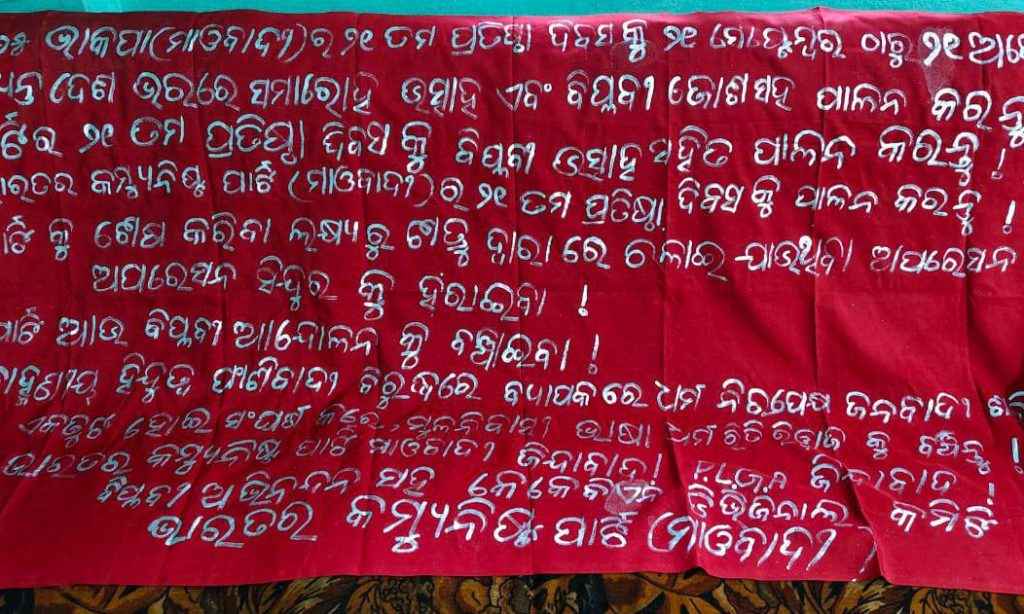 ଭାକପା (ମାଓବାଦୀ) ର ୨୧ ତମ ପ୍ରତିଷ୍ଠା ଦିବସ କୁ ୨୧ ସେପ୍ଟେମ୍ବର ଠାରୁ ୨୧
ଦେଶ ଭରରେ ସମାରୋହ ଉତ୍ସାହ ଏବଂ ବିପ୍ଳବୀ ଜୋଶ ସହ ପାଳନ କରନ୍ତୁ
୨୧ ତମ ପ୍ରତିଷ୍ଠା ଦିବସ କୁ ବିପ୍ଳବୀ ଉତ୍ସାହ ସହିତ ପାଳନ କରନ୍ତୁ !
କମ୍ୟୁନିଷ୍ଟ ପାର୍ଟି (ମାଓବାଦୀ) ର ୨୧ ତମ ପ୍ରତିଷ୍ଠା ଦିବସ କୁ ପାଳନ କରନ୍ତୁ !
କୁ ଶେଷ କରିବା ଲକ୍ଷ୍ୟ ରୁ ଶତ୍ରୁ ଦ୍ୱାରା ରେ ଚଳାଇ ଯାଉଥିବା ଅପରେସନ
ଅପରେସନ ସିନ୍ଦୁର କୁ ହରାଇବା !
ଆଉ ବିପ୍ଳବୀ ଆନ୍ଦୋଳନ କୁ ବଞ୍ଚାଇବା !
ହିନ୍ଦୁତ୍ୱ ଫାସିବାଦୀ ବିରୁଦ୍ଧରେ ବ୍ୟାପକ ରେ ଧର୍ମ ନିରପେକ୍ଷ ଜନବାଦୀ
ଏକଜୁଟ ହୋଇ ସଂଘର୍ଷ କରିବେ, ମୂଳନିବାସୀ ଭାଷା ଧର୍ମ ରିତି ରିୱାଜ କୁ ବଞ୍ଚାନ୍ତୁ !
ଭାରତର କମ୍ୟୁନିଷ୍ଟ ପାର୍ଟି ମାଓବାଦୀ ଜିନ୍ଦାବାଦ ! P.L.G.A ଜିନ୍ଦାବାଦ !
ବିପ୍ଳବୀ ଅଭିନନ୍ଦନ ସହ କେକେବିଏନ ଡିଭିଜିନାଲ କମିଟି
ଭାରତର କମ୍ୟୁନିଷ୍ଟ ପାର୍ଟି (ମାଓବାଦୀ)